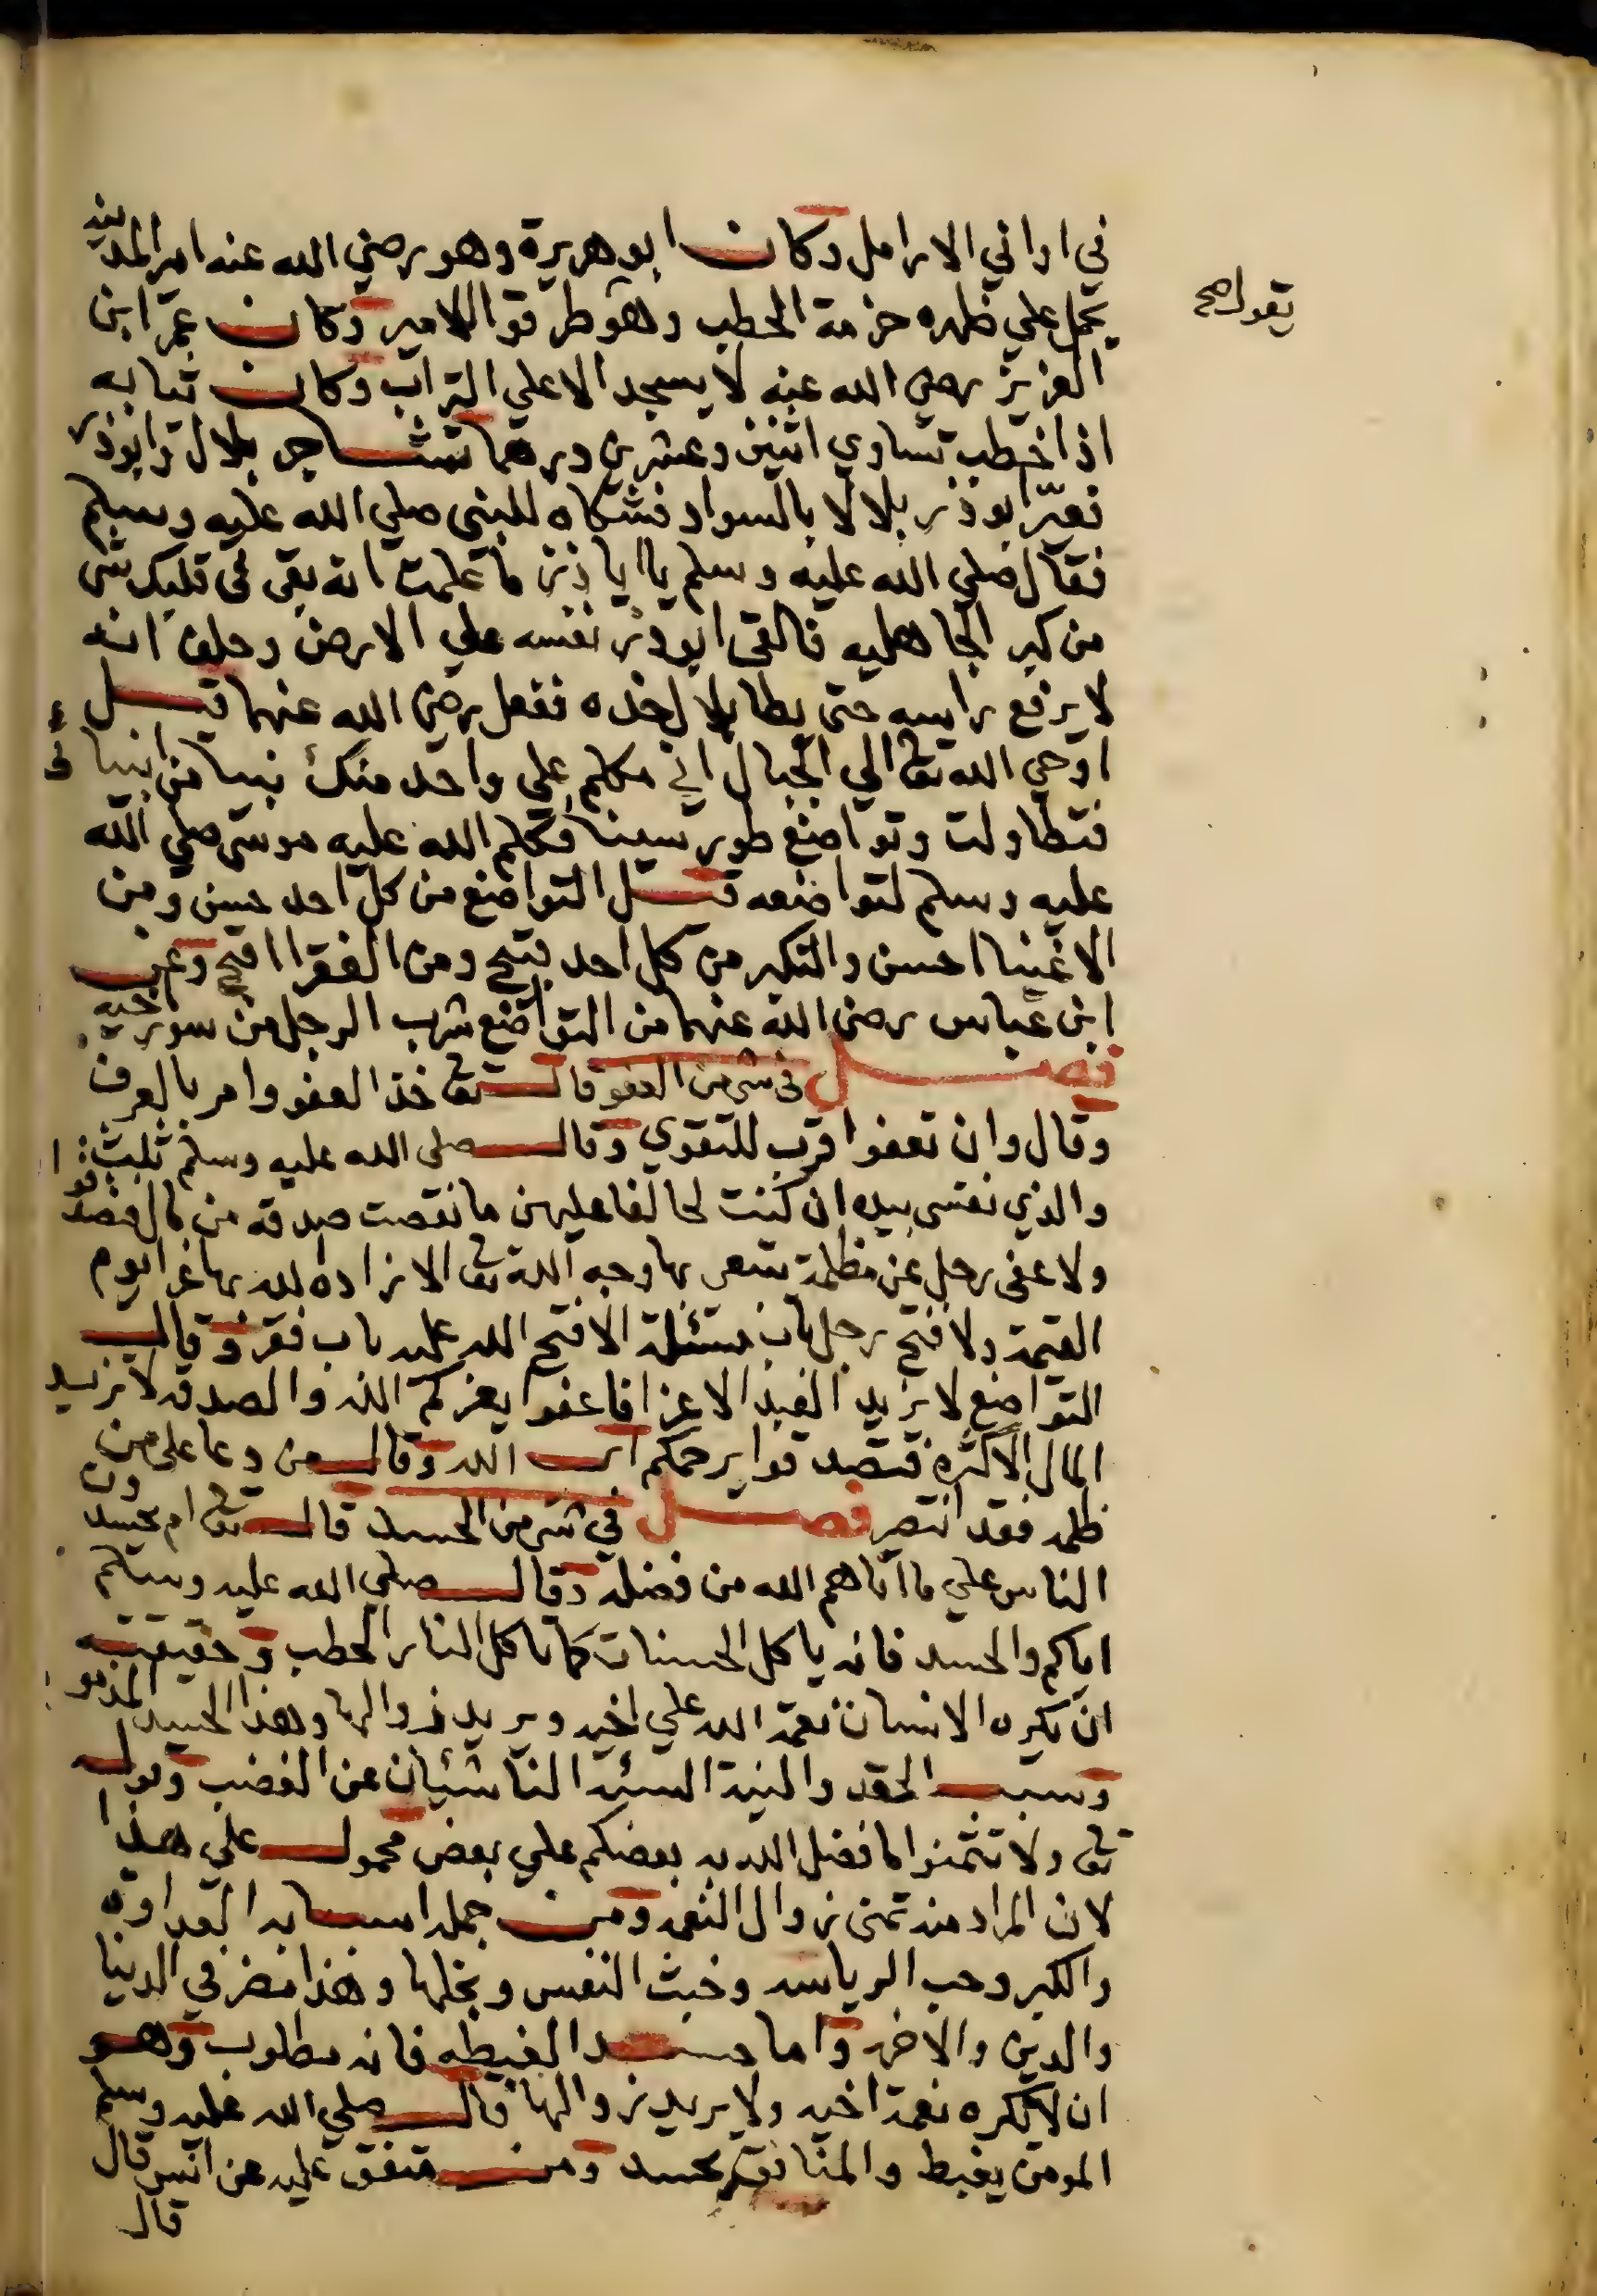 في اواني الارامل وكان ابو هريرة وهو رضي الله عنه امير المدينه
يحمل علي ظهره حزمة الحطب وهو طرقوا للامير وكان عمر ابن
يقول صح
العزيز رضي الله عنه لا يسجد الا علي التراب وكان ثيابه
اذا خطب تساوي اثنين وعشرين درهما تشاجر بلال وابوذر
فعيّر ابوذر بلالا بالسواد فشكاه للنبي صلي الله عليه وسلم
فقال صلي الله عليه وسلم يا ابا ذر ما علمت انه بقي في قلبك شي
من كبر الجاهليه فالقى ابوذر نفسه علي الارض وحلف انه
لا يرفع راسه حتي يطا بلال خده ففعل رضي الله عنهما قيل
اوحي الله تعالى الي الجبال اني مكلم علي واحد منك نبيا من انبيائي
فتطاولت وتواضع طور سينا فكلم الله عليه موسى صلي الله
عليه وسلم لتواضعه قيل التواضع من كل احد حسن ومن
الاغنيا احسن والتكبر من كل احد قبيح ومن الفقرا اقبح وعن
ابن عباس رضي الله عنهما من التواضع شرب الرجل من سور اخيه
فصل في شي من العفو قال تعالى خذ العفو وامر بالعرف
وقال وان تعفوا اقرب للتقوي وقال صلى الله عليه وسلم ثلث
والذي نفسي بيده ان كنت لحالفا عليهن ما نقصت صدقه من مال فتصدقوا
ولا عفى رجل عن مظلمة يبتغي بها وجه الله تعالى الا زاده الله بها عزا يوم
القيمة ولا فتح رجل باب مسئلة الا فتح الله عليه باب فقر وقال
التواضع لا يزيد العبد الا عزا فاعفوا يعزكم الله والصدقه لا تزيد
المال الا كثره فتصدقوا يرحمكم الله وقال من دعا على من
ظلمه فقد انتصر فصل في شي من الحسد قال تعالى ام يحسدون
الناس علي ما اتاهم الله من فضله وقال صلي الله عليه وسلم
اياكم والحسد فانه ياكل الحسنات كما ياكل النار الحطب وحقيقته
ان يكره الانسان نعمة الله علي اخيه ويريد زوالها وهذا الحسد المذموم
وسبب الحقد والنية السيئه الناشئان عن الغضب وقوله
تعالى ولا تتمنوا ما فضل الله به بعضكم علي بعض محمول علي هذا
لان المراد منه تمنى زوال النعمه ومن جمله اسبابه العداوة
والكبر وحب الرياسه وخبث النفس وبخلها وهذا مضر في الدنيا
والدين والاخره واما حسد الغبطه فانه مطلوب وهو
ان لا يكره نعمة اخيه ولا يريد زوالها قال صلي الله عليه وسلم
المومن يغبط والمنافق يحسد ومن متفق عليه عن انس قال
قال